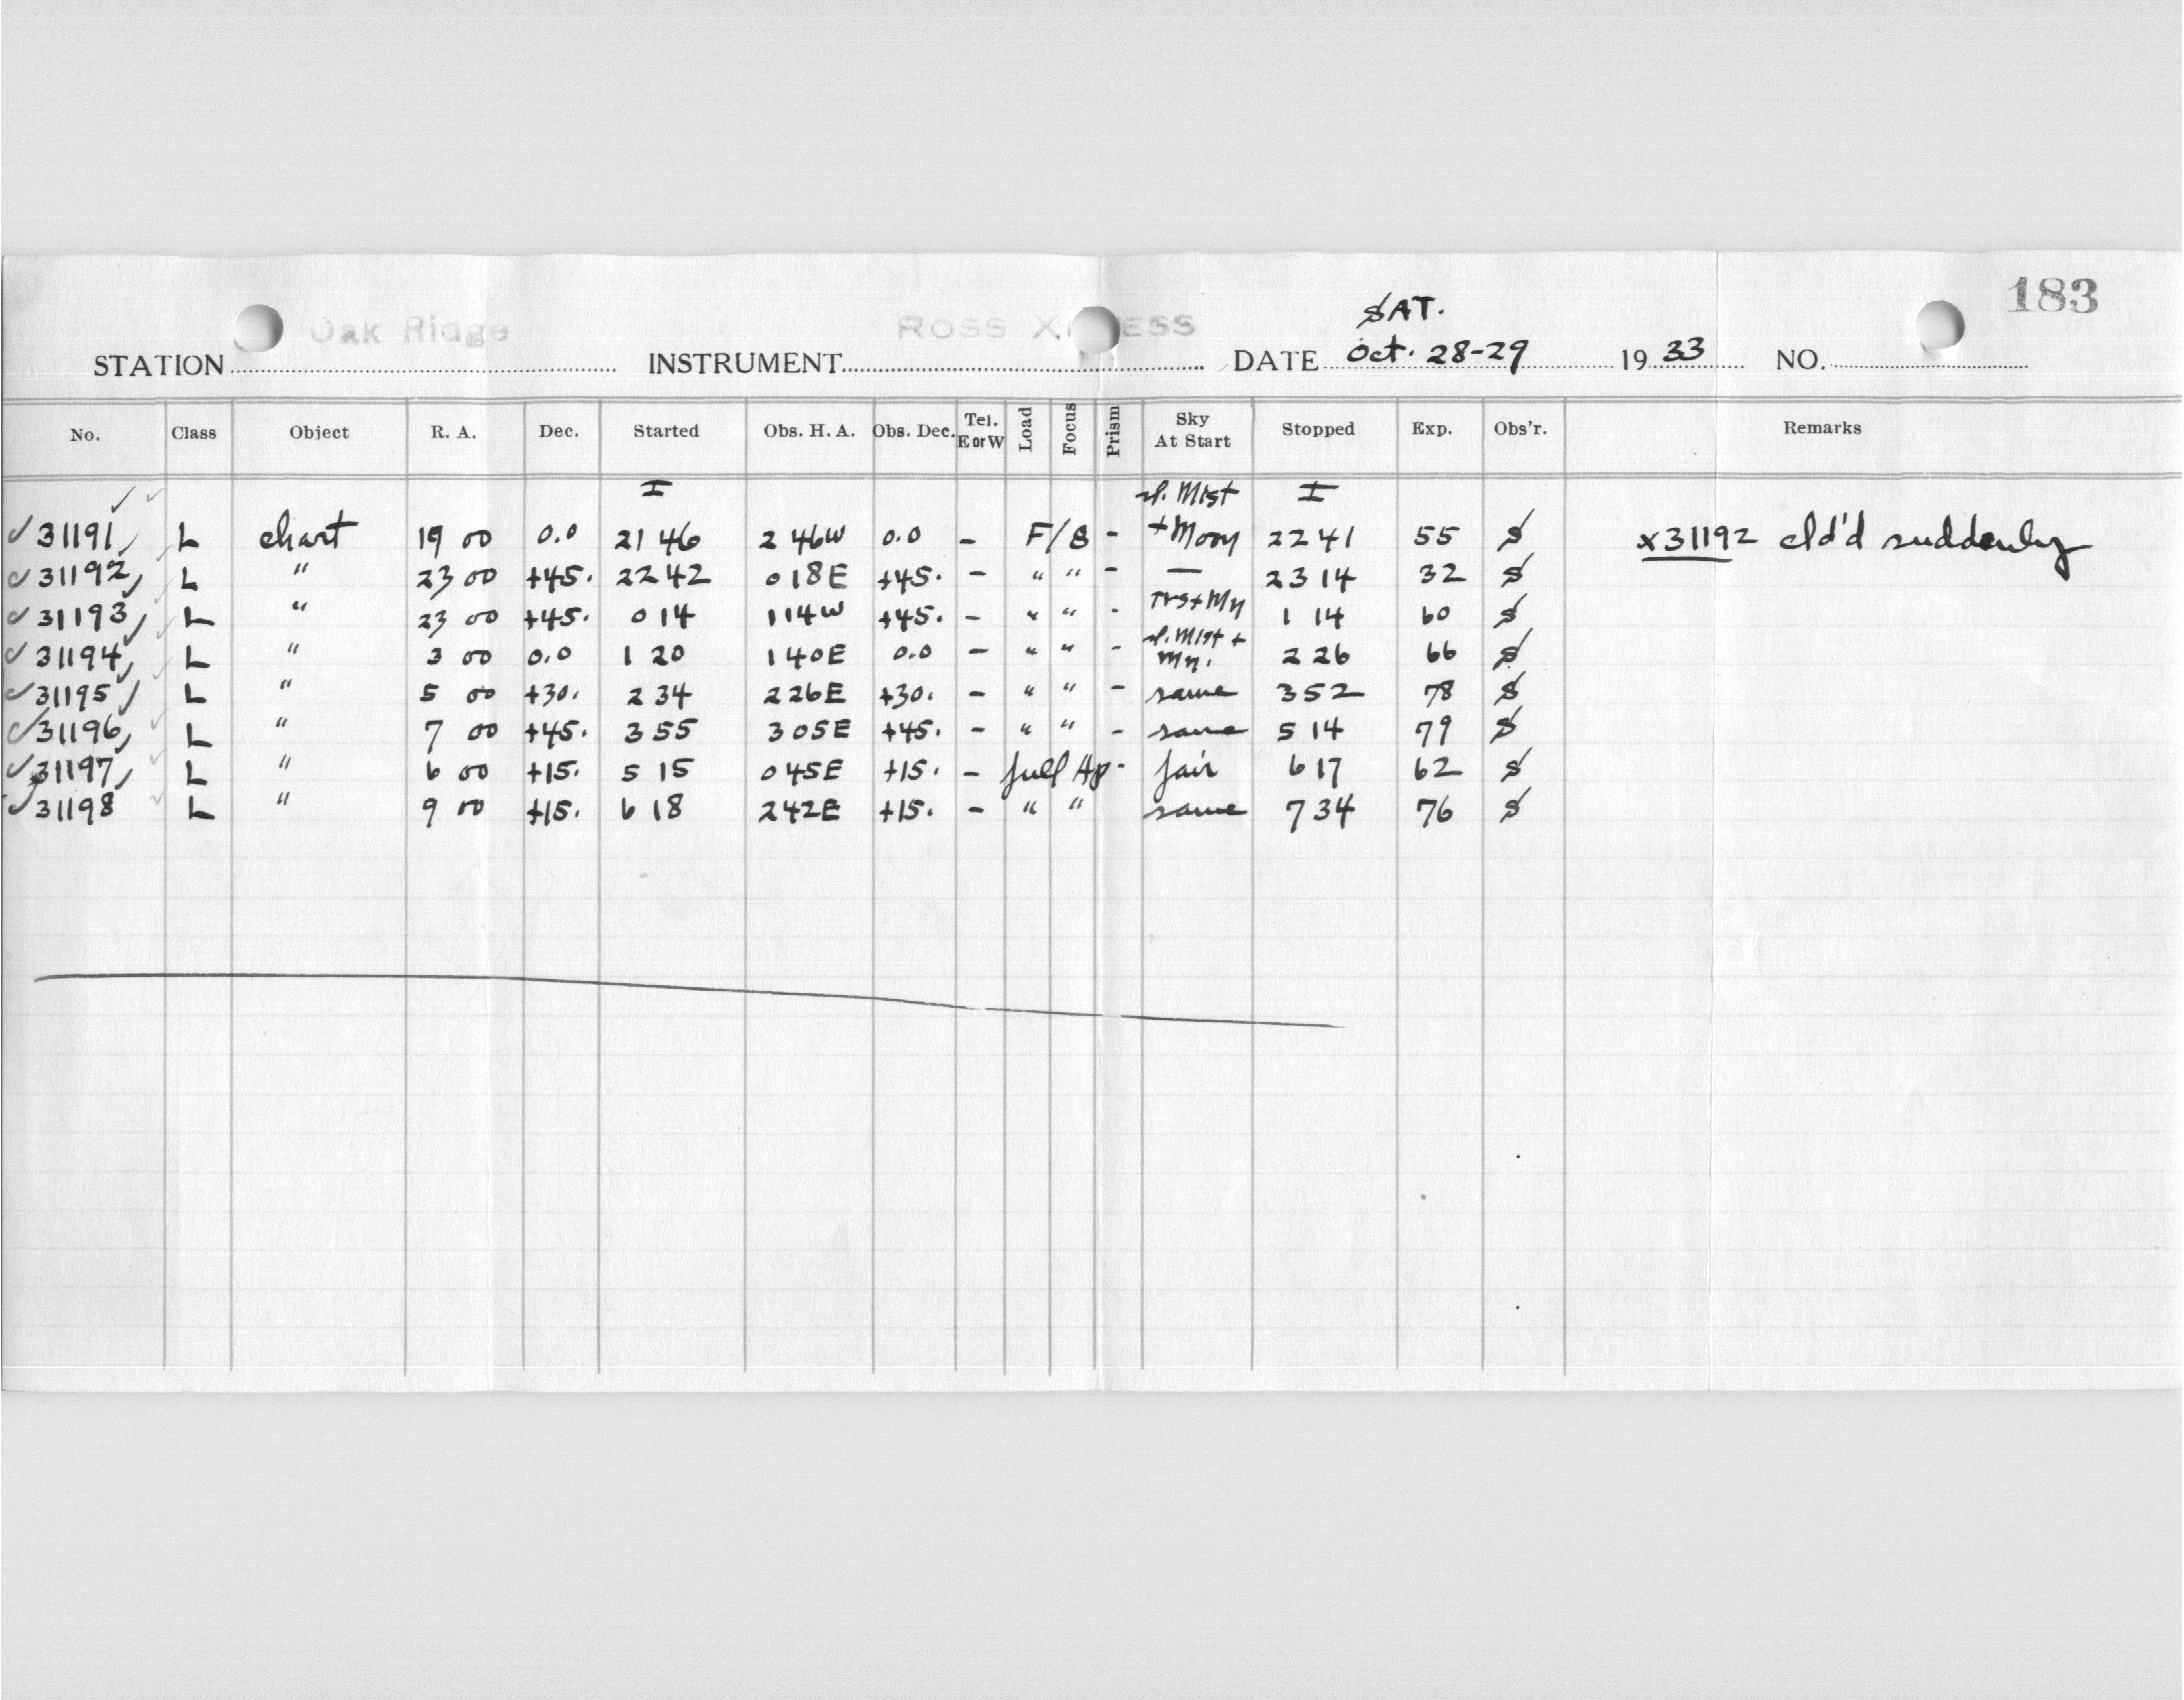 183
SAT.
STATION Oak Ridge INSTRUMENT Ross DATE Oct. 28-29 1933 NO.
No. Class Object R. A. Dec. Started Obs. H. A. Obs. Dec. Tel. E or W Load Focus Prism Sky At Start Stopped Exp. Obs'r. Remarks
I sl. Mist I
31191 L chart 19 00 0.0 21 46 2 46W 0.0 - F/8 - +Moon 22 41 55 S x31192 cld'd suddenly
31192 L " 23 00 +45. 22 42 0 18E +45. - " " - — 23 14 32 S
31193 L " 23 00 +45. 0 14 1 14W +45. - " " - Trs+Mn 1 14 60 S
31194 L " 3 00 0.0 1 20 1 40E 0.0 - " " - sl. Mist + Mn. 2 26 66 S
31195 L " 5 00 +30. 2 34 2 26E +30. - " " - same 3 52 78 S
31196 L " 7 00 +45. 3 55 3 05E +45. - " " - same 5 14 79 S
31197 L " 6 00 +15. 5 15 0 45E +15. - full Ap - fair 6 17 62 S
31198 L " 9 00 +15. 6 18 2 42E +15. - " " same 7 34 76 S